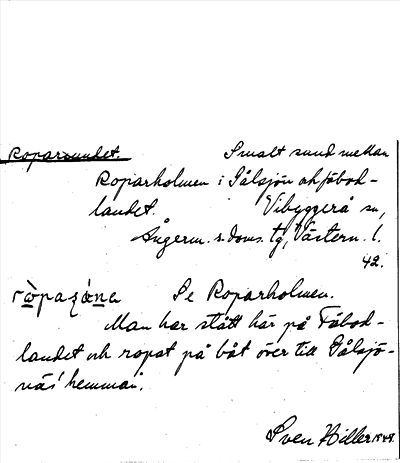 Roparsundet. Smalt sund mellan
Roparholmen i Gålsjön och fäbod-
landet. Vibyggerå sn,
Ångerm. s. doms. tg, Västern. l.
42.
Se Roparholmen.
Man har stått här på Fäbod-
landet och ropat på båt över till Gålsjö-
näs' hemman.
Sven Hiller 1949.